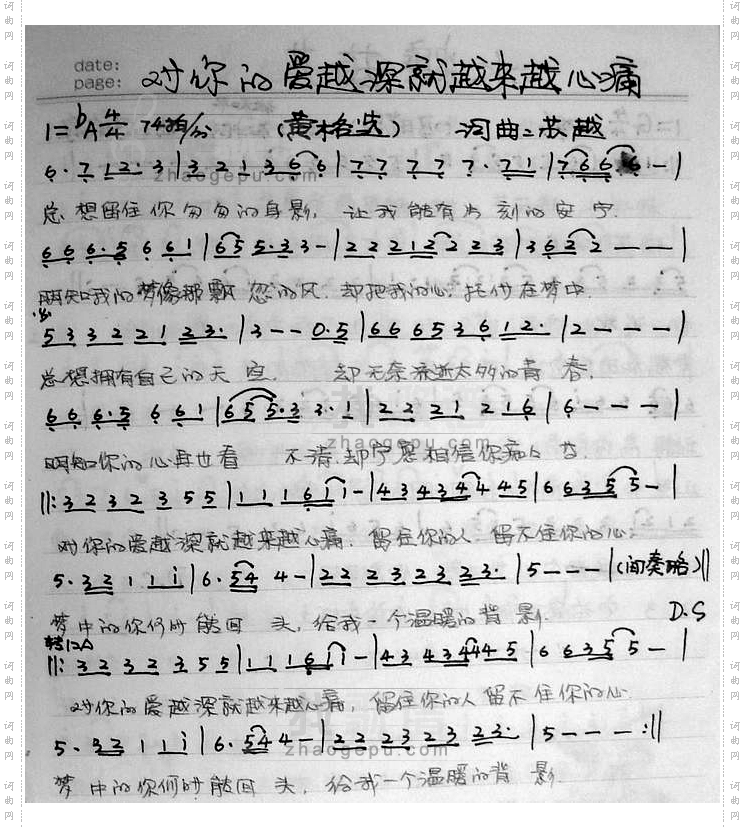 date:
page:
对你的爱越深就越来越心痛
1=bA 4/4 74拍/分 (黄格选) 词曲:苏越
6· 7 1 2· 3 | 3 2 1 3 6 6 | 7 7 7 7 7· 7 1 | 7 6 6 6 1 - |
zhaogepu.com
总想留住你匆匆的身影, 让我能有片刻的安宁.
6 6 6·5 6 6 1 | 6 5 5·3 3 - | 2 2 2 1 2 2 2 2 3 | 3 6 2 2 - - - |
明知我的梦像那飘忽的风, 却把我的心, 托付在梦中.
5 3 3 2 2 1 2 3· | 3 - - 0·5 | 6 6 6 5 3 6 1 2· | 2 - - - |
总想拥有自己的天空. 却无奈流逝太多的青春.
6 6 6·5 6 6 1 | 6 5 5·3 3·1 | 2 2 2 1 2 1 6 | 6 - - - |
zhaogepu.com
明知你的心再也看不清, 却宁愿相信你
‖: 3 2 3 2 3 5 5 | 1 1 1 6 1 1 - | 4 3 4 3 4 4 4 5 | 6 6 3 5 5 - |
对你的爱越深就越来越心痛, 留住你的人, 留不住你的心;
5·3 2 1 1 1 i | 6·5 4 4 - | 2 2 2 3 2 3 2 3· | 5 - - - | (间奏略) ‖
梦中的你何时能回头, 给我一个温暖的背影. D.S
转1=A
‖: 3 2 3 2 3 5 5 | 1 1 1 6 1 1 - | 4 3 4 3 4 4 4 5 | 6 6 3 5 5 - |
对你的爱越深就越来越心痛, 留住你的人留不住你的心
5·3 2 1 1 i | 6·5 4 4 - | 2 2 2 3 2 3 2 3· | 5 - - - :‖
zhaogepu.com
梦中的你何时能回头, 给我一个温暖的背影.
词曲网